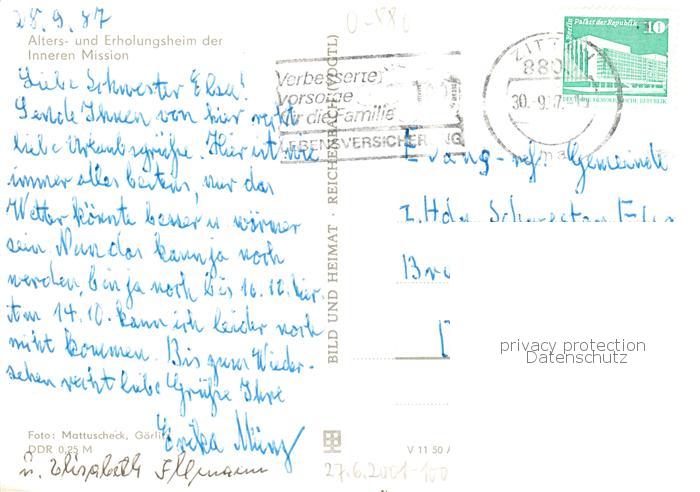 28.9.87
Alters- und Erholungsheim der
Inneren Mission
Liebe Schwester Elsa!
Sende Ihnen von hier recht
liebe Urlaubsgrüße. Hier ist wie
immer alles bestens, nur das
Wetter könnte besser u. wärmer
sein Nun das kann ja noch
werden, bin ja noch bis 16.10. hier.
Am 14.10. kann ich leider noch
nicht kommen. Bis zum Wieder-
sehen recht liebe Grüße Ihre
Erika Münz
u. Elisabeth
Foto: Mattuscheck, Görlitz
DDR 0,25 M
BILD UND HEIMAT · REICHENBACH (VOGTL)
V 11 50
27.6.2001-100
0-880
Verbesserte
Vorsorge
für die Familie
LEBENSVERSICHERUNG
ZITTAU
880
30.-9.87
Berlin, Palast der Republik
10
DEUTSCHE DEMOKRATISCHE REPUBLIK
Evang.-ref. Gemeinde
z. Hdn. Schwester Elsa
privacy protection
Datenschutz